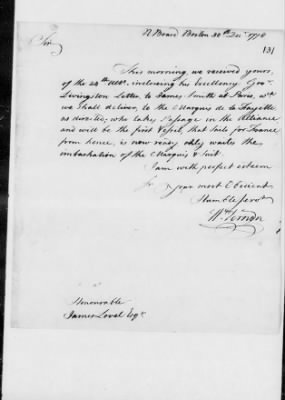 N Board Boston 30th Decr 1778
131
Sir
This morning, we received yours,
of the 24th inclosing his Excellency Govr
Livingston Letter to James Smith at Paris, wch
we shall deliver, to the Marquis de la Fayette
as directed; who takes Passage in the Alliance
and will be the first Vessel, that Sails for France
from hence, is now ready only waits the
embarkation of the Marquis & Suit
I am with perfect esteem
Sir your most Obedient
Humble Servt
Wm Vernon
Honourable
James Lovel Esqr